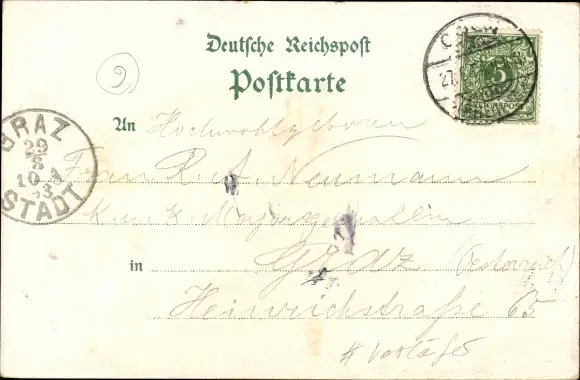 Deutsche Reichspost
Postkarte
9
5
REICHSPOST
27
GRAZ
29
8
10 A
93
STADT
An Hochwohlgeboren
Frau R. A. Neumann
K. u. K. Majorsgemahlin
in Graz (Österreich)
Heinrichstraße 65